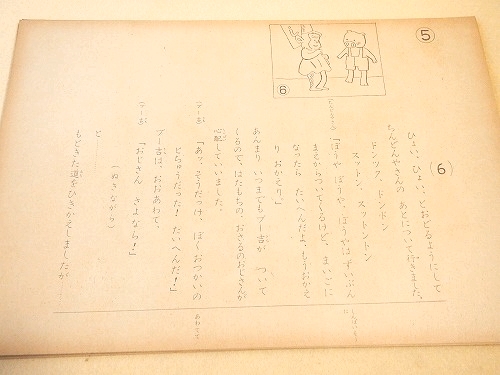 ⑤
⑥
(6)
ひょい、ひょい、とおどるようにして
たんどんやさんの あとについて行きました。
ドンツク、ドンドン
スットン、スットントン
「ぼうや ぼうや、ぼうやはずいぶん
まえからついてくるけど、まいごに
なったら たいへんだよ、もうおかえ
り おかえり。」
あんまり いつまでもブー吉が ついて
くるので、はたもちの、おさるのおじさんが
心配していいました。
「あッ、そうだっけ、ぼくおつかいの
とちゅうだった！たいへんだ！」
ブー吉は、おおあわて、
「おじさん さよなら！」
(ぬきながら)
と――
もどきた道をひきかえしましたが
しんぱいそうに
あわてて